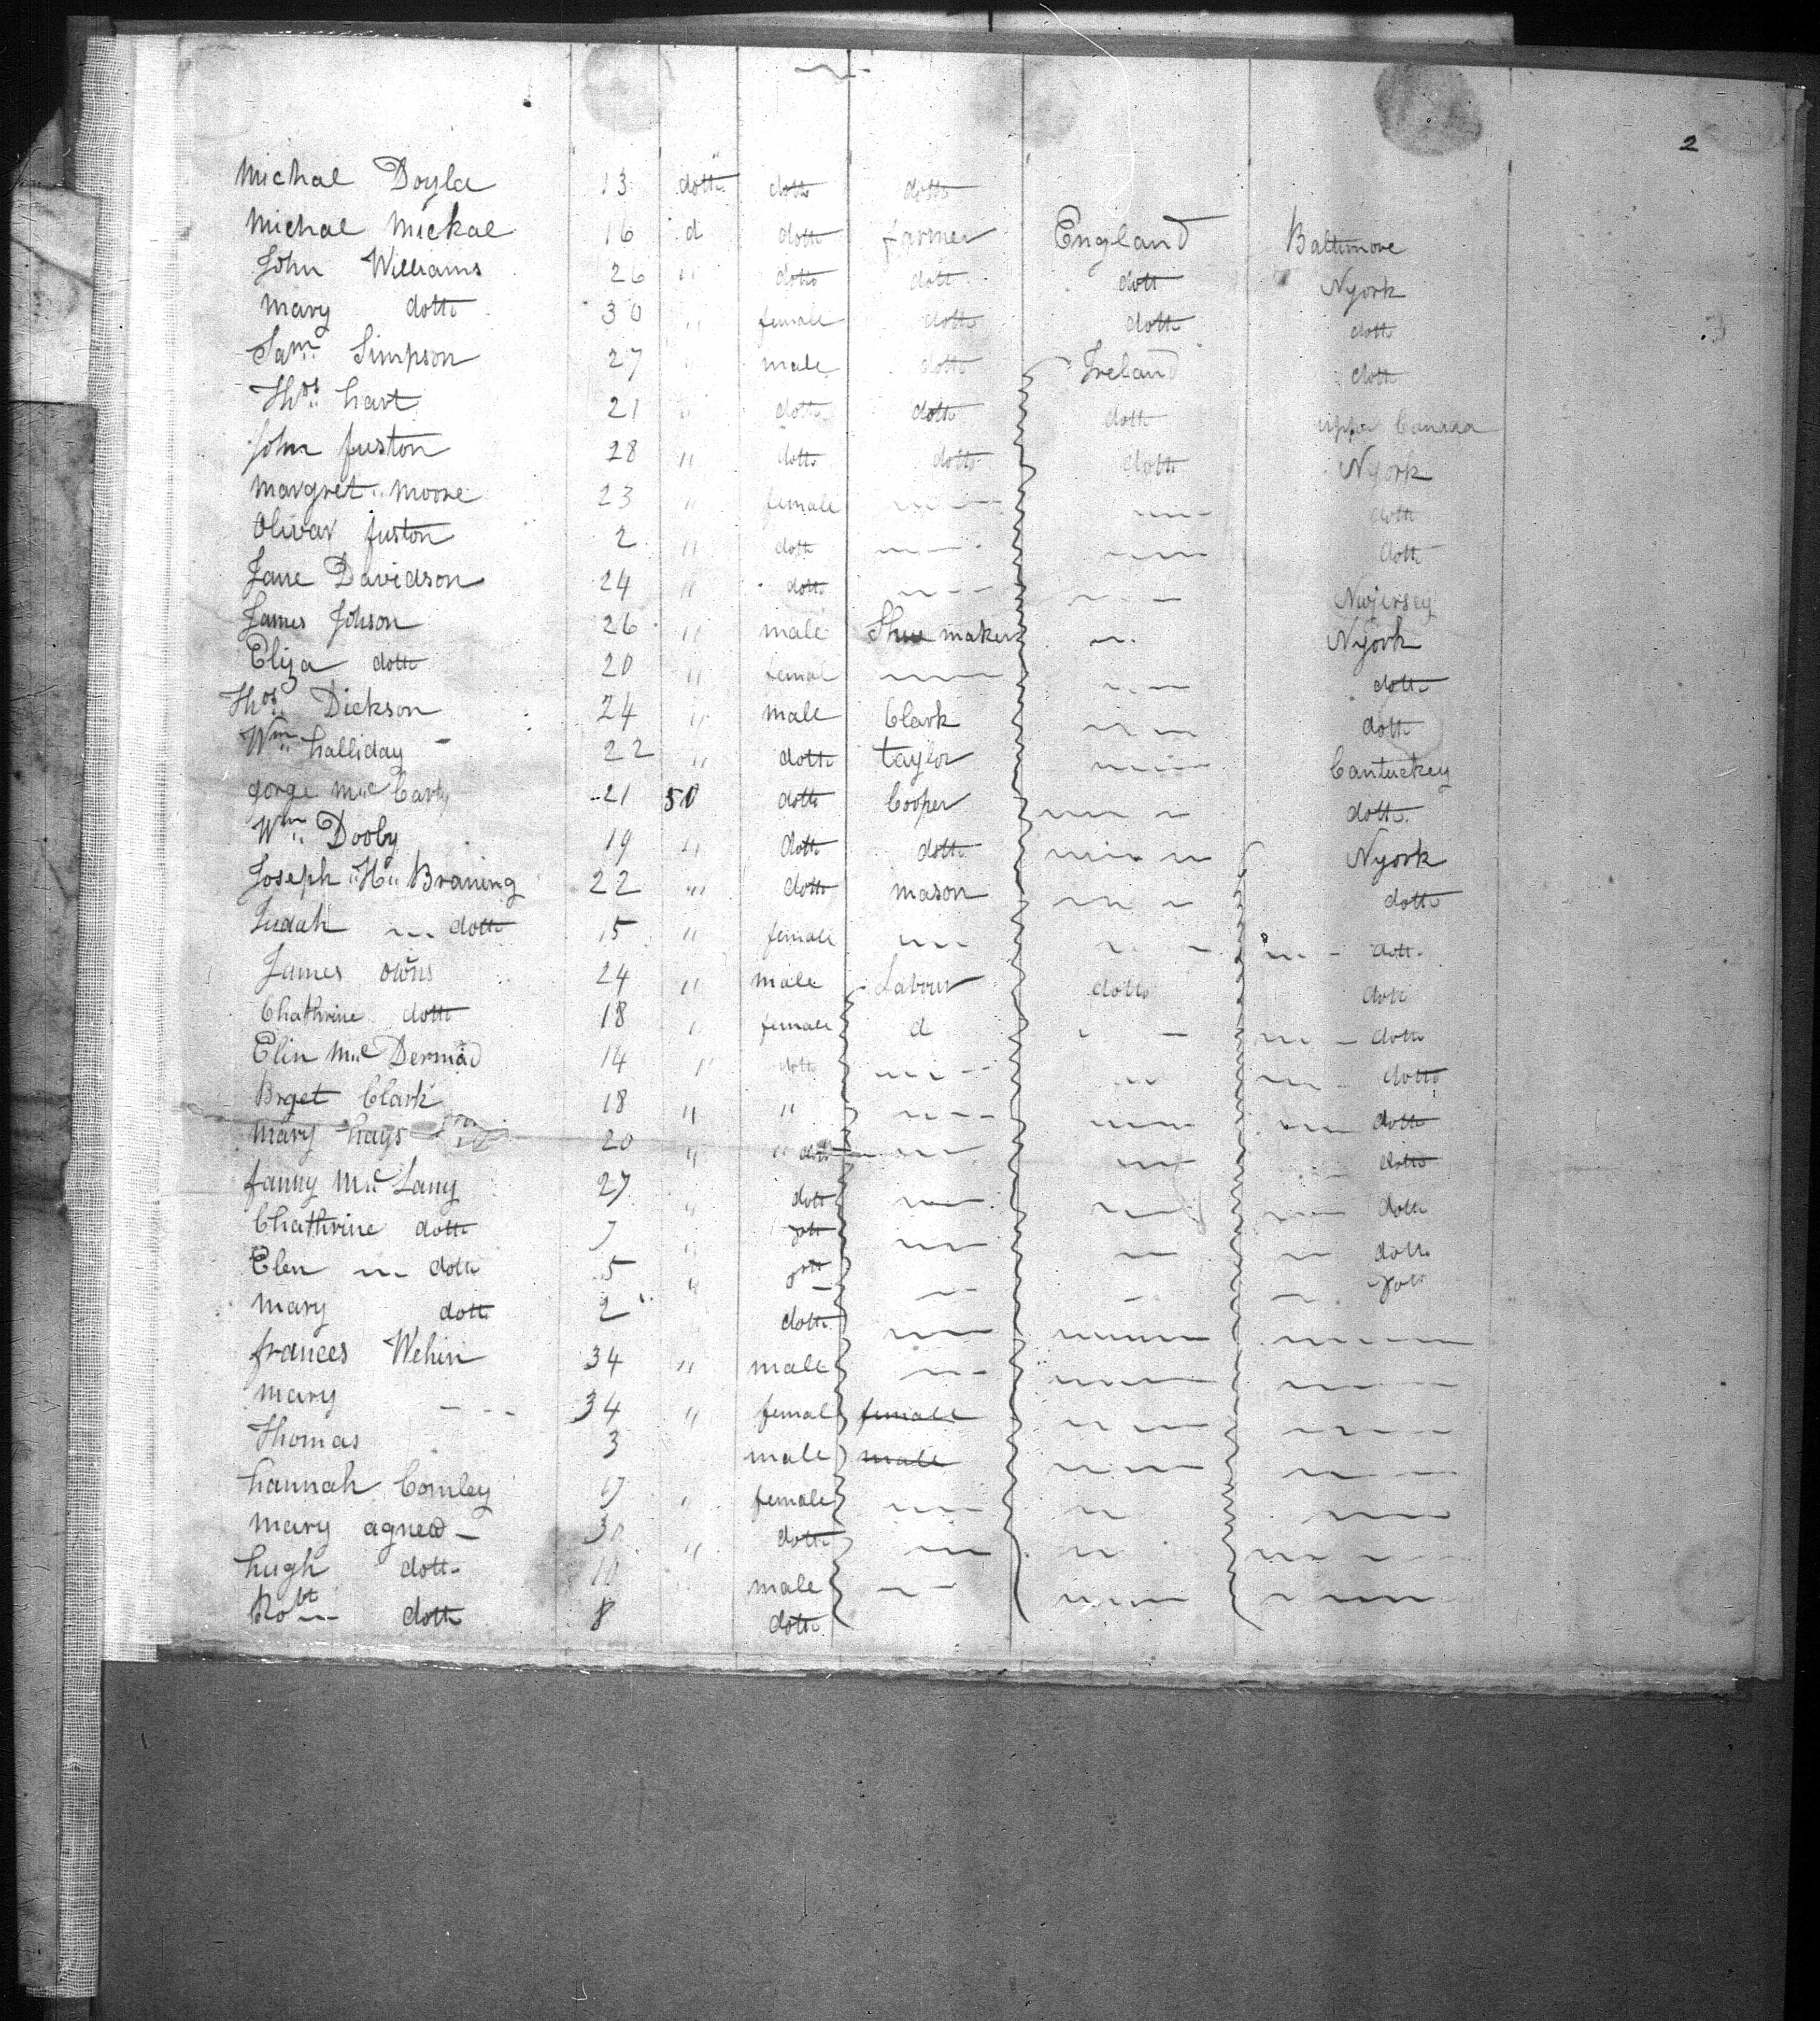 2
Michal Doyla 13 dotto dotto dotto
Michal Mickal 16 d dotto farmer England Baltimore
John Williams 26 " dotto dott dott Nyork
Mary dotto 30 " female dotto dotto dotto
Sam Simpson 27 " male dotto Ireland dotto
Thos hart 21 " dotto dotto dotto upper Canada
John fuston 28 " dotto dotto dotto Nyork
Margret Moore 23 " female dotto
Olivar fuston 2 " dotto dotto
Jane Davidson 24 " dotto Nwjersey
James Johson 26 " male Shue maker Nyork
Eliza dotto 20 " femal dotto
Thos Dickson 24 " male Clark dotto
Wm halliday 22 " dotto taylor Cantuckey
gorge Mc Carty 21 50 dotto Cooper dotto
Wm Dooby 19 " dotto dotto Nyork
Joseph "H" Braning 22 " dotto mason dotto
Judah dotto 15 " female dott
James owns 24 " male Labour dotto dott
Chathrine dotto 18 " female d dotto
Elin Mc Dermad 14 " dott dotto
Brget Clark 18 " " dotto
Mary hays 20 " " dotto dotto
fanny Mc Lany 27 " dott dotto
Chathrine dotto 7 " dott dotto
Elen dotto 5 " dott dott
Mary dotto 2 dotto
frances Wehin 34 " male
Mary 34 " femal female
Thomas 3 male male
hannah Comley 17 " female
Mary agnew 30 " dotto
hugh dotto 10 male
Robt dotto 8 dotto